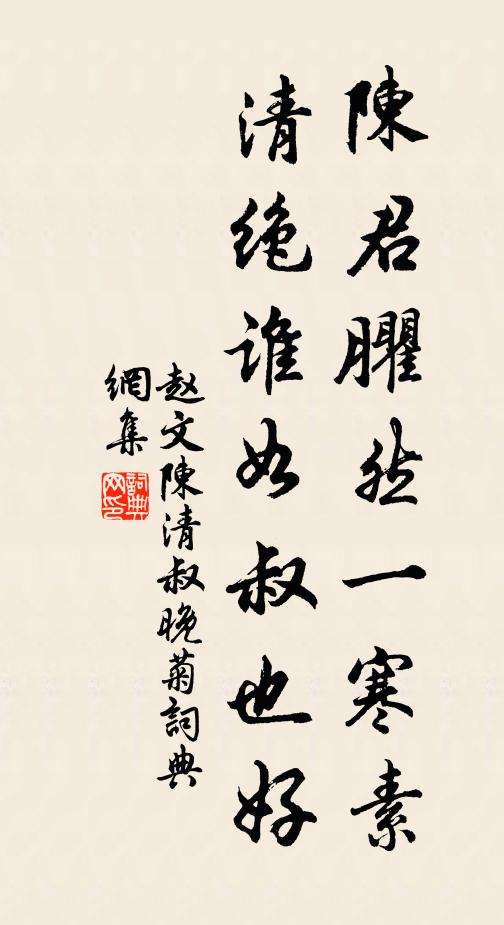 陳君臞然一寒素
清絶誰如叔也好
赵文陳清叔晚菊詞典
網集
詞典
网印